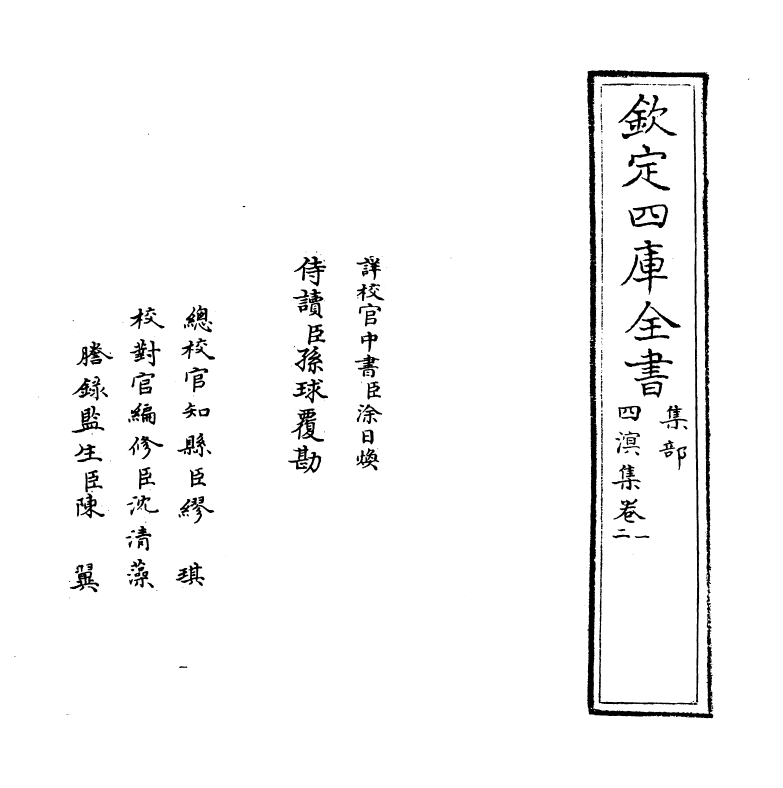 欽定四庫全書
集部
四溟集卷一
二
詳校官中書臣涂日煥
侍讀臣孫球覆勘
總校官知縣臣繆琪
校對官編修臣沈清藻
謄錄監生臣陳翼